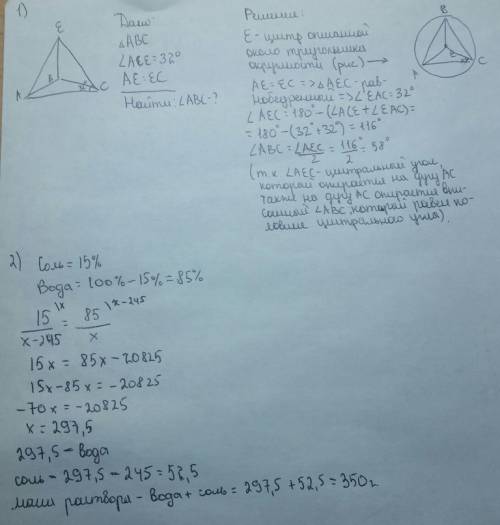 1)
E
B
A
C
Дано:
△ABC
∠ACE=32°
AE=EC
Найти: ∠ABC-?
Решение:
E - центр описанной
около треугольника
окружности (рис) →
B
E
A
C
AE=EC => △AEC - рав-
нобедренной => ∠EAC=32°
∠AEC=180°-(∠ACE+∠EAC)=
=180°-(32°+32°)=116°
∠ABC=∠AEC/2=116°/2=58°
(т.к ∠AEC - центральной угол,
которой опирается на дугу AC
также на дугу AC опирается впи-
санной ∠ABC, которой равен по-
ловине центрального угла).
2) Соль=15%
Вода=100%-15%=85%
15\x / x-245 = 85\x-245 / x
15x = 85x - 20825
15x-85x = -20825
-70x = -20825
x = 297,5
297,5 - вода
соль - 297,5 - 245 = 52,5
масса раствора - вода + соль = 297,5 + 52,5 = 350г